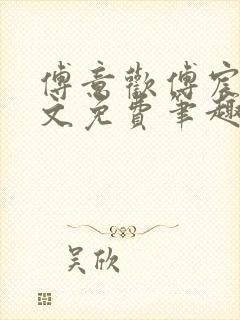 傅意歡傅宸
文免費筆趣
吴欣